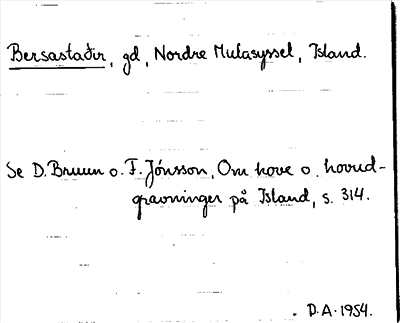 Bersastaðir, gd, Nordre Mulasyssel, Island.
Se D. Bruun o. F. Jónsson, Om hove o. hovud-
gravninger på Island, s. 314.
D.A. 1954.